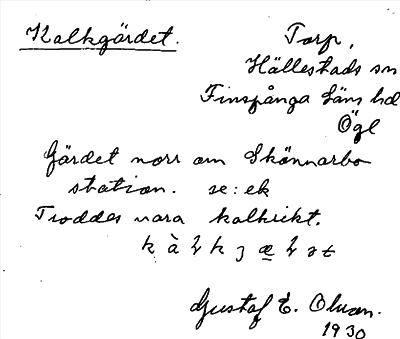 Kalkgärdet.
Torp,
Hällestads sn
Finspånga läns hd
Ögl
Gärdet norr om Skönnarbo
station. se: ek
Troddes vara kalkrikt.
Gustaf E. Olsson.
1930